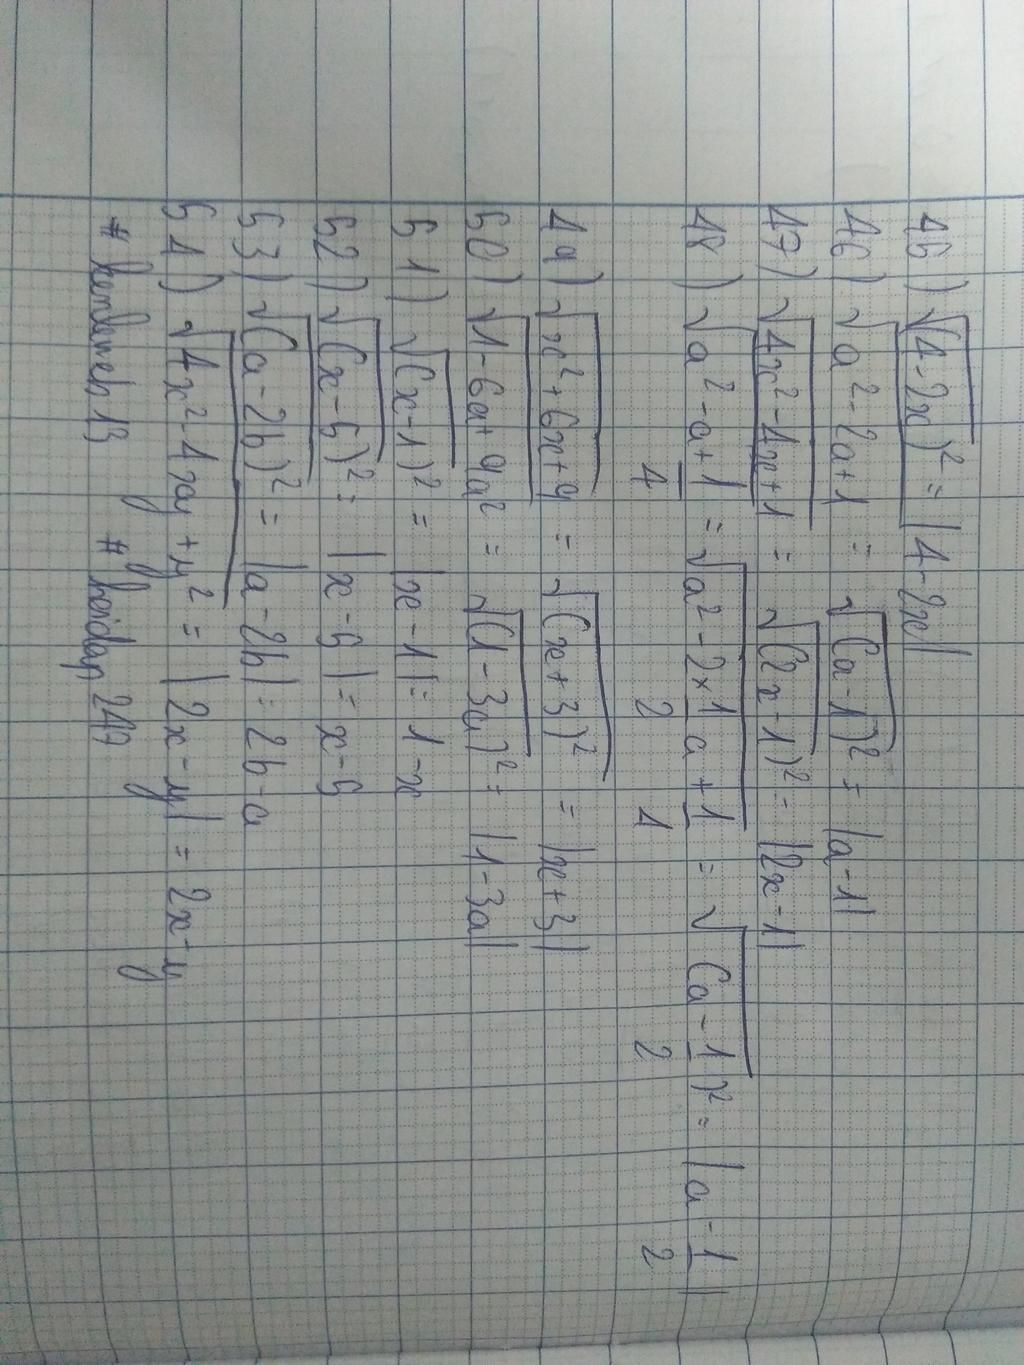 46) √(4-2x)² = |4-2x|
46) √a²-2a+1 = √(a-1)² = |a-1|
47) √4x²-4x+1 = √(2x-1)² = |2x-1|
48) √a²-a+1/4 = √a²-2×1/2a+1/1 = √(a-1/2)² = |a-1/2|
49) √x²+6x+9 = √(x+3)² = |x+3|
50) √1-6a+9a² = √(1-3a)² = |1-3a|
51) √(x-1)² = |x-1| = 1-x
52) √(x-5)² = |x-5| = x-5
53) √(a-2b)² = |a-2b| = 2b-a
54) √4x²-4xy+y² = |2x-y| = 2x-y